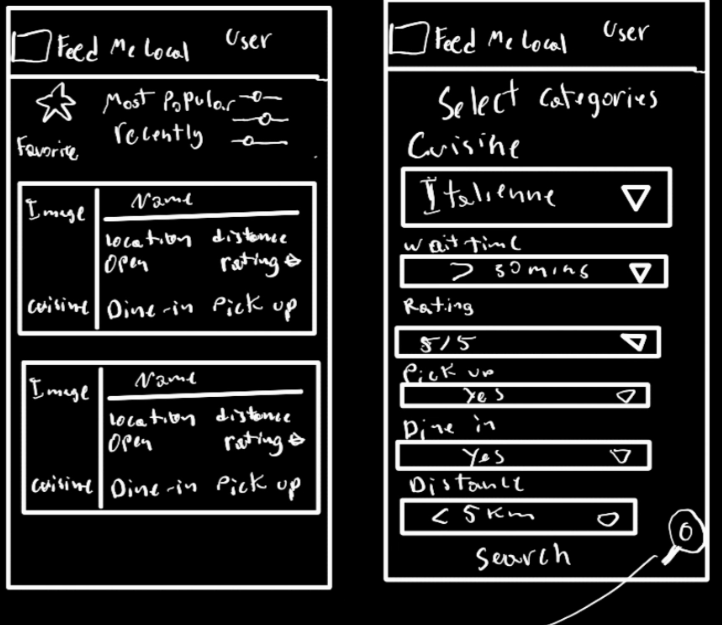 Feed Me Local User
Favorite
Most Popular
recently
Image
Name
location distance
Open rating
cuisine
Dine-in Pick up
Image
Name
location distance
Open rating
cuisine
Dine-in Pick up
Feed Me Local User
Select Categories
Cuisine
Italienne
Wait time
> 30 mins
Rating
5/5
Pick up
Yes
Dine in
Yes
Distance
< 5 Km
Search